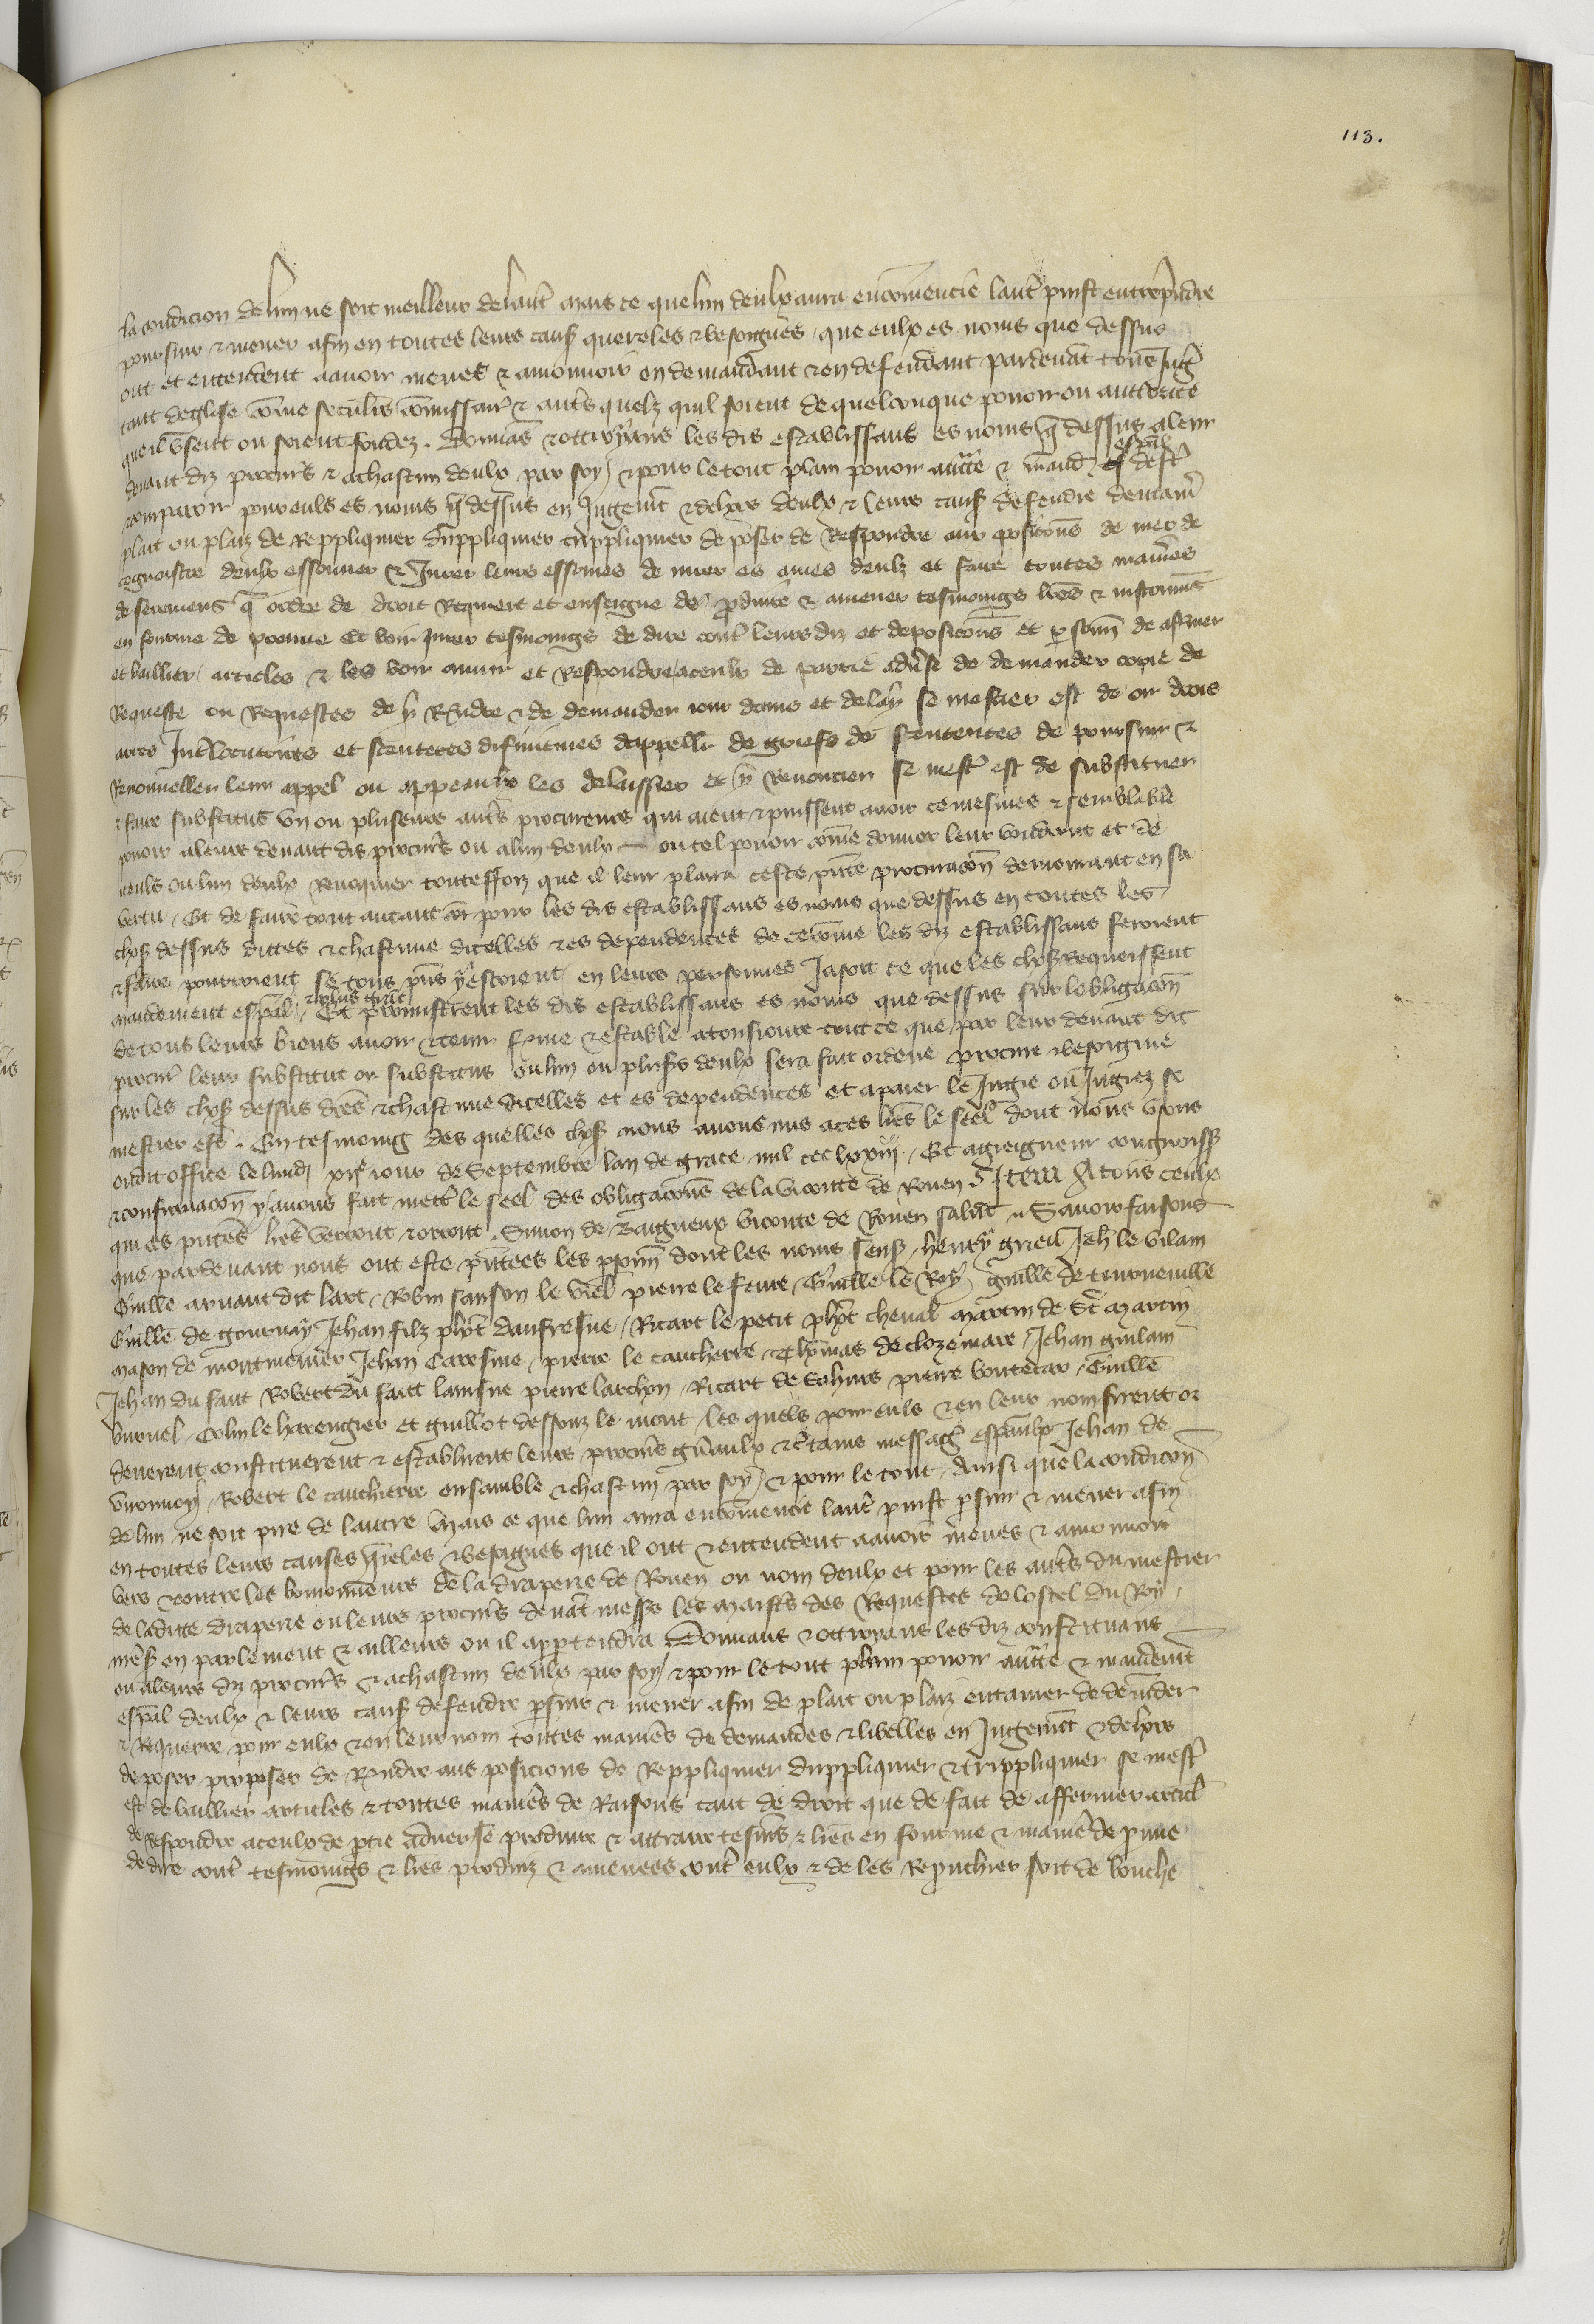 113.
la condicion de lun ne soit meilleur de laut̃ mais ce que lun deulx aura encõmencie laut̃ puist entrepr̃dre
poursuir & mener afin en toutes leurs caus̃ quereles & besoignes que eulx es noms que dessus
ont et entendent a auoir meues & amouuoir en demandant & en defendant pardeuãt tous Jug̃
tant deglise cõme seculers cõmissair̃ & aut̃s quelz quil soient de quelconque pouoir ou auttorite
que il vsent ou soient fondez. Donnãs & ottroyans les dis establissans es noms q̃ dessus a leur
deuant diz procur̃s & a chascun deulx par soy & pour le tout plain pouoir autt̃e & mand̃ esp̃al dest̃
comparoir pour euls es noms q̃ dessus en Jugem̃t & dehors deulx & leurs caus̃ defendre dentam̃
plait ou plaiz de Reppliquier duppliquier trippliquier de poser de Respondre aux posicõns de nier de
cognoistre deulx essonnier & Jurer leurs essonnes de iurer es ames deulz et faire toutes manier̃es
de seremens q̃ ordre de droit Requiert et enseigne de produire & amener tesmoings lr̃es & instrumẽs
en fourme de preuue et veir iurer tesmoings de dire cont̃ leurs diz et deposicõns et p̱sonn̄ de afermer
et baillier articles & les veir auuir et Respondre a ceulx de partie adũse de demander copie de
Requeste ou Requestes de y Rñdre & de demander iour dauis et delay se mestier est de oir drois
arres Jnt̃locutoires et sentences difinitiues dappeller de griefs de sentences de poursuir &
Renouueller leur appel ou appeaulx les delaissier et y Renoncier se mest̃ est de substituer
& faire substitus vn ou pluseurs aut̃s procureurs qui aient & puissent auoir ce mesmes & semblable
pouoir a leurs deuant dis procur̃s ou a lun deulx ou tel pouoir cõme donner leur vouldront et de
iceuls ou lun deulx Reuoquier touteffoiz que il leur plaira ceste p̃nte procuracõn demourant en sa
vertu. Et de faire tout autant cõ pour les dis establissans es noms que dessus en toutes les
chos̃ dessus dittes & chascune dicelles & es dependences de ce cõme les diz establissans feroient
& faire pourroient se tous p̃ns y estoient en leurs personnes Jasoit ce que les chos̃ Requeissent
mandement esp̃al. Et promistrent les dis establissans es noms que dessus sur lobligacõn
de tous leurs biens auoir & tenir ferme & estable a tousiours tout ce que par leur deuant dit
procur̃ leur substitut ou substitus ou lun ou plus̃s deulx sera fait ordene procure & besoignie
sur les chos̃ dessus dc̃es & chascune dicelles et es dependences et a paier le Jugie ou Jugiez se
mestier est. En tesmoing des quelles chos̃ nous auons mis a ces lr̃es le seel dont nous vsons
oudit office le lundi jour de Septembre lan de grace mil ccc lxxiiij. Et a greigneur congnoiss̃
& confirmacõn y auons fait mett̃ le seel des obligacõns de la viconte de Rouen. Jtem A tous ceulx
qui es p̃ntes lr̃es verront & orront. Simon de Baigneux viconte de Rouen salut. Sauoir faisons
que pardeuant nous ont este p̃ntees les p̱sonn̄ dont les noms sens̃. henry grieu Jeh̃ le vilain
Guill̃e aruaut dit lart. Robin sanson le viel pierre le feure Guill̃e le Roy Guill̃e de tourneuille
Guill̃e de gournay Jehan filz ph̃t daufresne Ricart le petit ph̃t cheual Martin de St̃ martin
mason de montmeiner Jehan Caresme pierre le cauchetie Thomas de clozemare Jehan guilain
Jehan du faut Robert du faut lainsne pierre larchon Ricart de Sohiers pierre boutecar Guill̃e
buruel Colin le harengier et guillot dessouz le mont les quels pour euls & en leur nom firent or
denerent constituerent & establirent leurs procur̃s gñaulx & c̃tains messag̃ esp̃aulx Jehan de
Robert le cauchetie ensamble & chascun par soy & pour le tout. Ainsi que la condicion
de lun ne soit pire de lautre Mais ce que lun aura encõmencie laut̃ puist p̱suir & mener afin
en toutes leurs causes q̃reles & besoignes que il ont & entendent a auoir meues & amouuoir
vers & contre les boujonneurs de la draperie de Rouen ou nom deulx et pour les aut̃s du mestier
de laditte draperie ou leurs procur̃s deuãt mess̃s les maist̃s des Requestes de lostel du Roy
nr̃e s̃ en parlement & ailleurs ou il appartendra Donnans & ottroians les diz constituans
ou a leurs diz procur̃s & a chascun deulx par soy & pour le tout plain pouoir autt̃e & mandem̃t
esp̃al deulx & leurs caus̃ defendre p̱suir & mener afin de plait ou plaiz entamer de dem̃der
& Requerre pour eulx & en leur nom toutes manier̃s de demandes & libelles en Jugem̃t & dehors
de poser proposer de Rñdre aus posicions de Reppliquier duppliquier & trippliquier se mest̃
est de baillier articles & toutes manier̃s de Raisons tant de droit que de fait de affermer articl̃
de Respondre a ceulx de p̱tie aduerse produire & attraire tesm̃s & lr̃es en fourme & manier̃e de p̱uue
de dire cont̃ tesmoings & lr̃es produiz & amenees cont̃ eulx & de les Reprochier soit de bouche